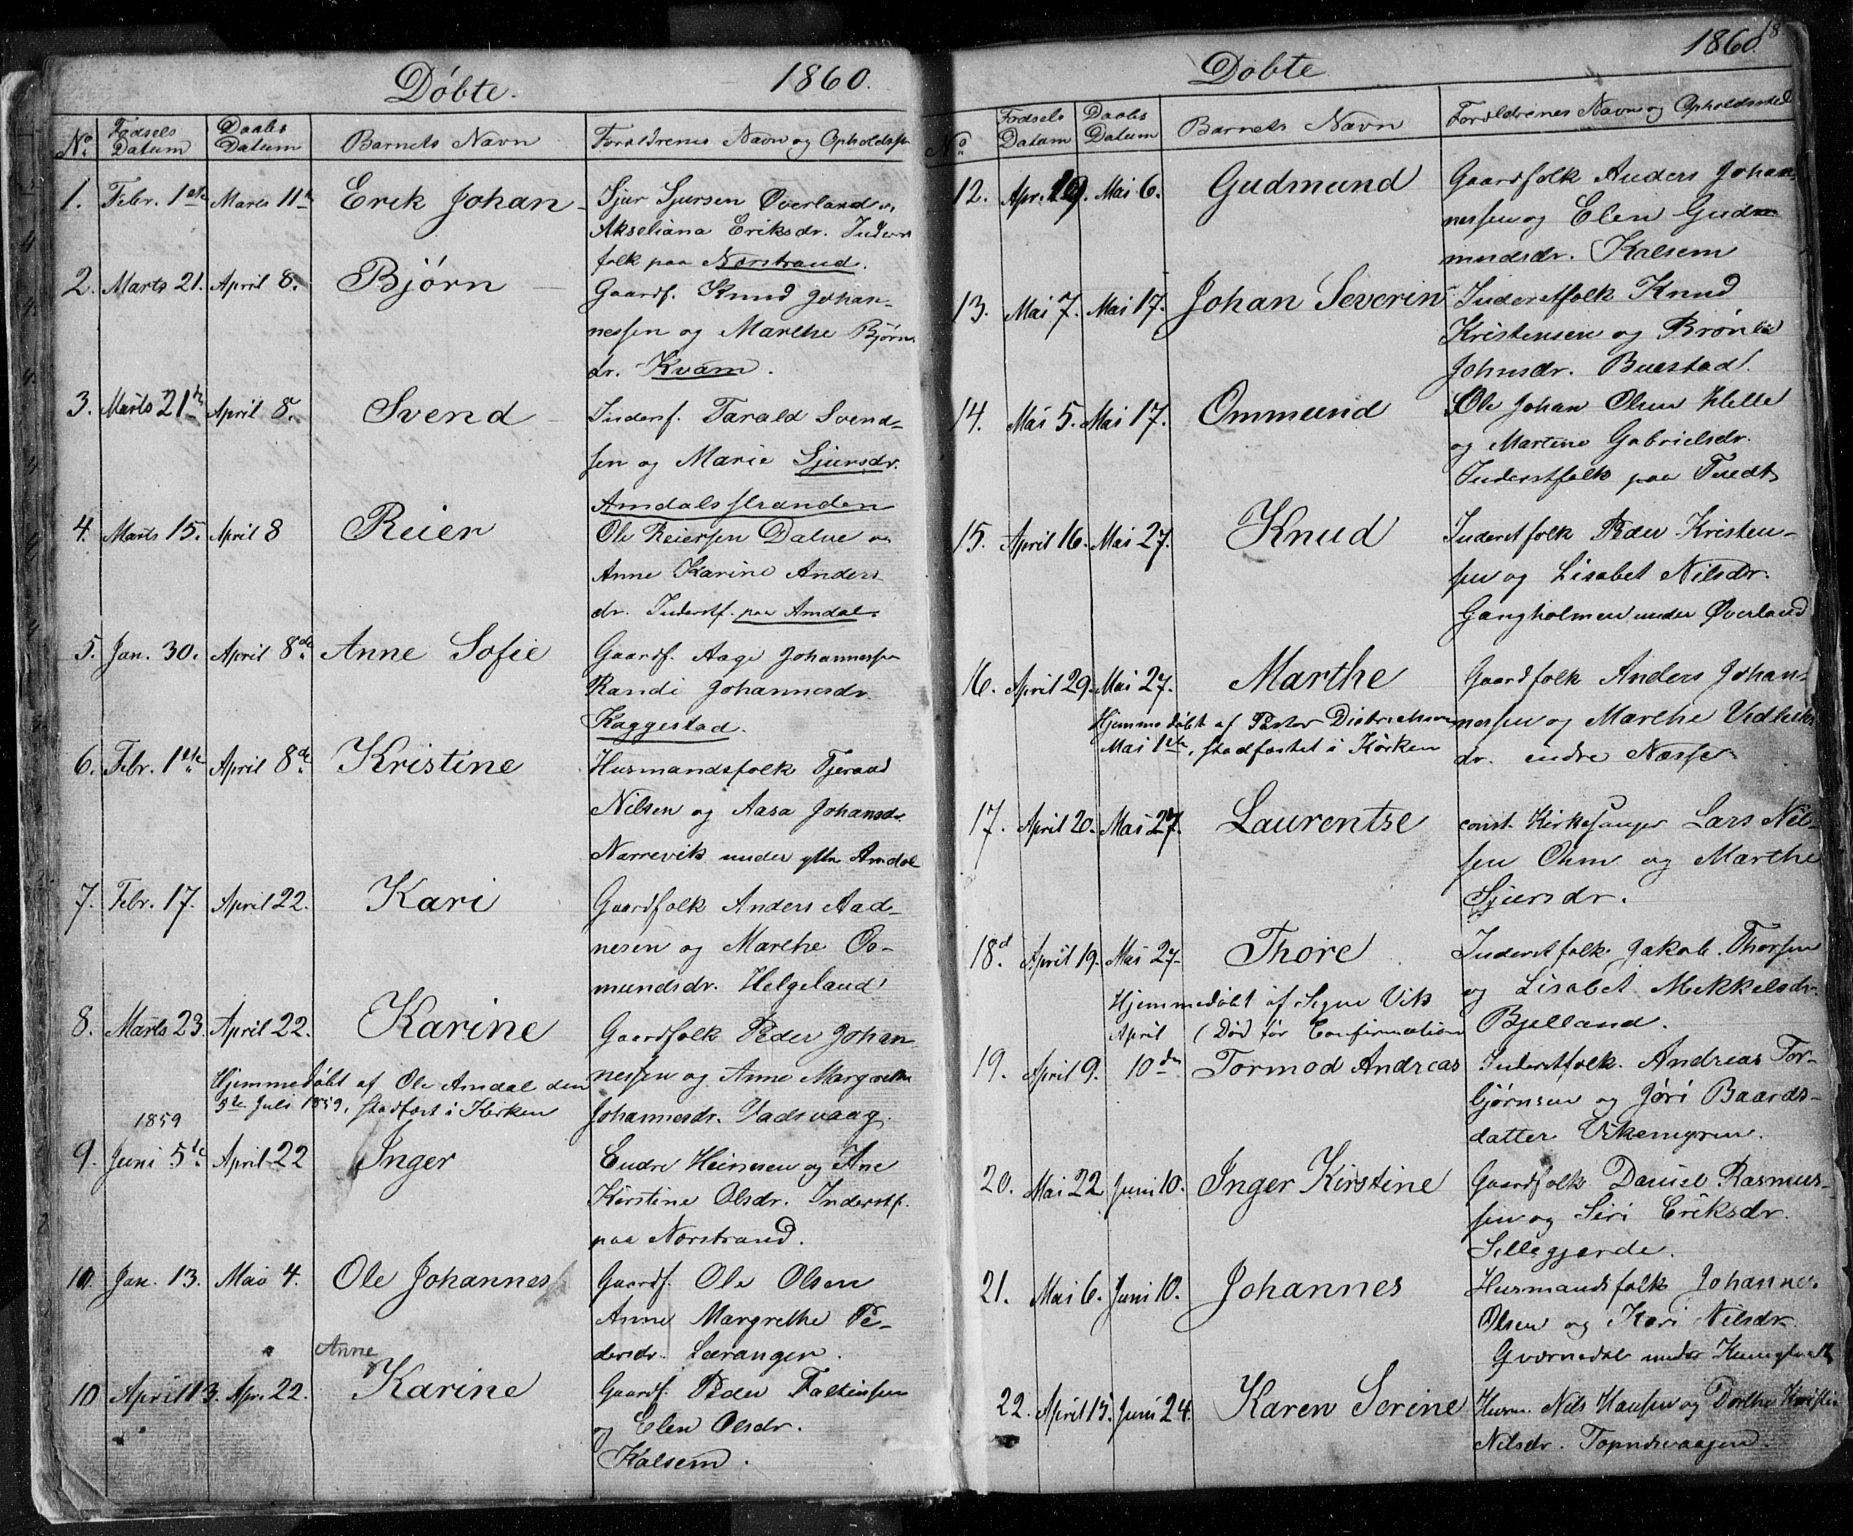 Døbte. 1860.
No. Fødsels Datum Daabs Datum Barnets Navn Forældrenes Navn og Opholdsst
1. Febr. 1ste Marts 11te Erik Johan Sjur Sjursen Øverland o
Akseliana Eriksdr. Inderst
folk paa Norstrand.
2. Marts 21. April 8. Bjørn Gaardf. Knud Johan-
nessen og Marthe Bjørns
dr. Kvam.
3. Marts 21de April 8. Svend Inderf. Tarald Svend-
sen og Marie Sjursdr.
Amdalsstranden
4. Marts 15. April 8 Reier Ole Reiersen Dalve og
Anne Karine Anders
dr. Inderstf. paa Amdal.
5. Jan. 30. April 8de Anne Sofie Gaardf. Aage Johannessen
Randi Johannesdr.
Kaggestad.
6. Febr. 1ste April 8de Kristine Husmandsfolk Tjerand
Nilsen og Aasa Johansdr
Narrevik under ytre Amdal
7. Febr. 17. April 22. Kari Gaardfolk Anders Aad-
nesen og Marthe Oo-
mundsdr. Helgeland
8. Marts 23. April 22. Karine Gaardfolk Peder Johan-
Hjemmedøbt af Ole Amdal den nessen og Anne Margrethe
5te Juli 1859, stadfæst i Kirken Johannesdr. Vadsvaag.
1859
9. Juni 5te April 22 Inger Endre Heinesen og Ane
Kirstine Olsdr. Inderstf.
paa Norstrand.
10. Jan. 13. Mai 4. Ole Johannes Gaardf. Ole Olsen
Anne Margrethe Pe-
dersdr. Laranger.
Anne
10 April 13. Apr. 22. Karine Gaardf. Peder Falkensen
og Elen Olsdr.
Kalsem.
Døbte 1860. 18
No. Fødsels Datum Daabs Datum Barnets Navn Forældrenes Navn og Opholdssted
12. Apr. 19. Mai 6. Gudmund Gaardfolk Anders Johan-
nessen og Elen Gud-
mundsdr. Kalsem
13. Mai 7. Mai 17. Johan Severin Inderstfolk Knud
Kristensen og Brønla
Johnsdr. Buestad.
14. Mai 5. Mai 17. Ommund Ole Johan Olsen Helle
og Martine Gabrielsdr.
Inderstfolk paa Tuedt
15. April 16. Mai 27. Knud Inderstfolk Peder Kristen-
sen og Lisabet Nilsdr.
Gangholmen under Øverland
16. April 29. Mai 27. Marthe Gaardfolk Anders Johan-
Hjemmedøbt af Pastor Dietrichson nessen og Marthe Vidleiks
Mai 1ste, stadfæstet i Kirken dr. indre Næsse
17. April 20. Mai 27. Laurentse const. Kirkesanger Lars Nil-
sen Ohm og Marthe
Sjursdr.
18d April 19. Mai 27. Thore Inderstfolk Jakob Thorsen
Hjemmedøbt af Signe Vik og Lisabet Mikkelsdr.
April (Død før Confirmation Bjelland.
19. April 9. 10den Tormod Andreas Inderstfolk. Andreas Tor-
bjørnsen og Jøri Baards-
datter Vikemyren.
20. Mai 22 Juni 10. Inger Kirstine Gaardfolk Daniel Rasmus-
sen og Siri Eriksdr.
Sillegjerde.
21. Mai 6. Juni 10. Johannes Husmandsfolk Johannes
Olsen og Kari Nilsdr.
Qværnedal under
22. April 15. Juni 24. Karen Serine Husm. Nils Hansen og Dorthe Kirstin
Nilsdr.